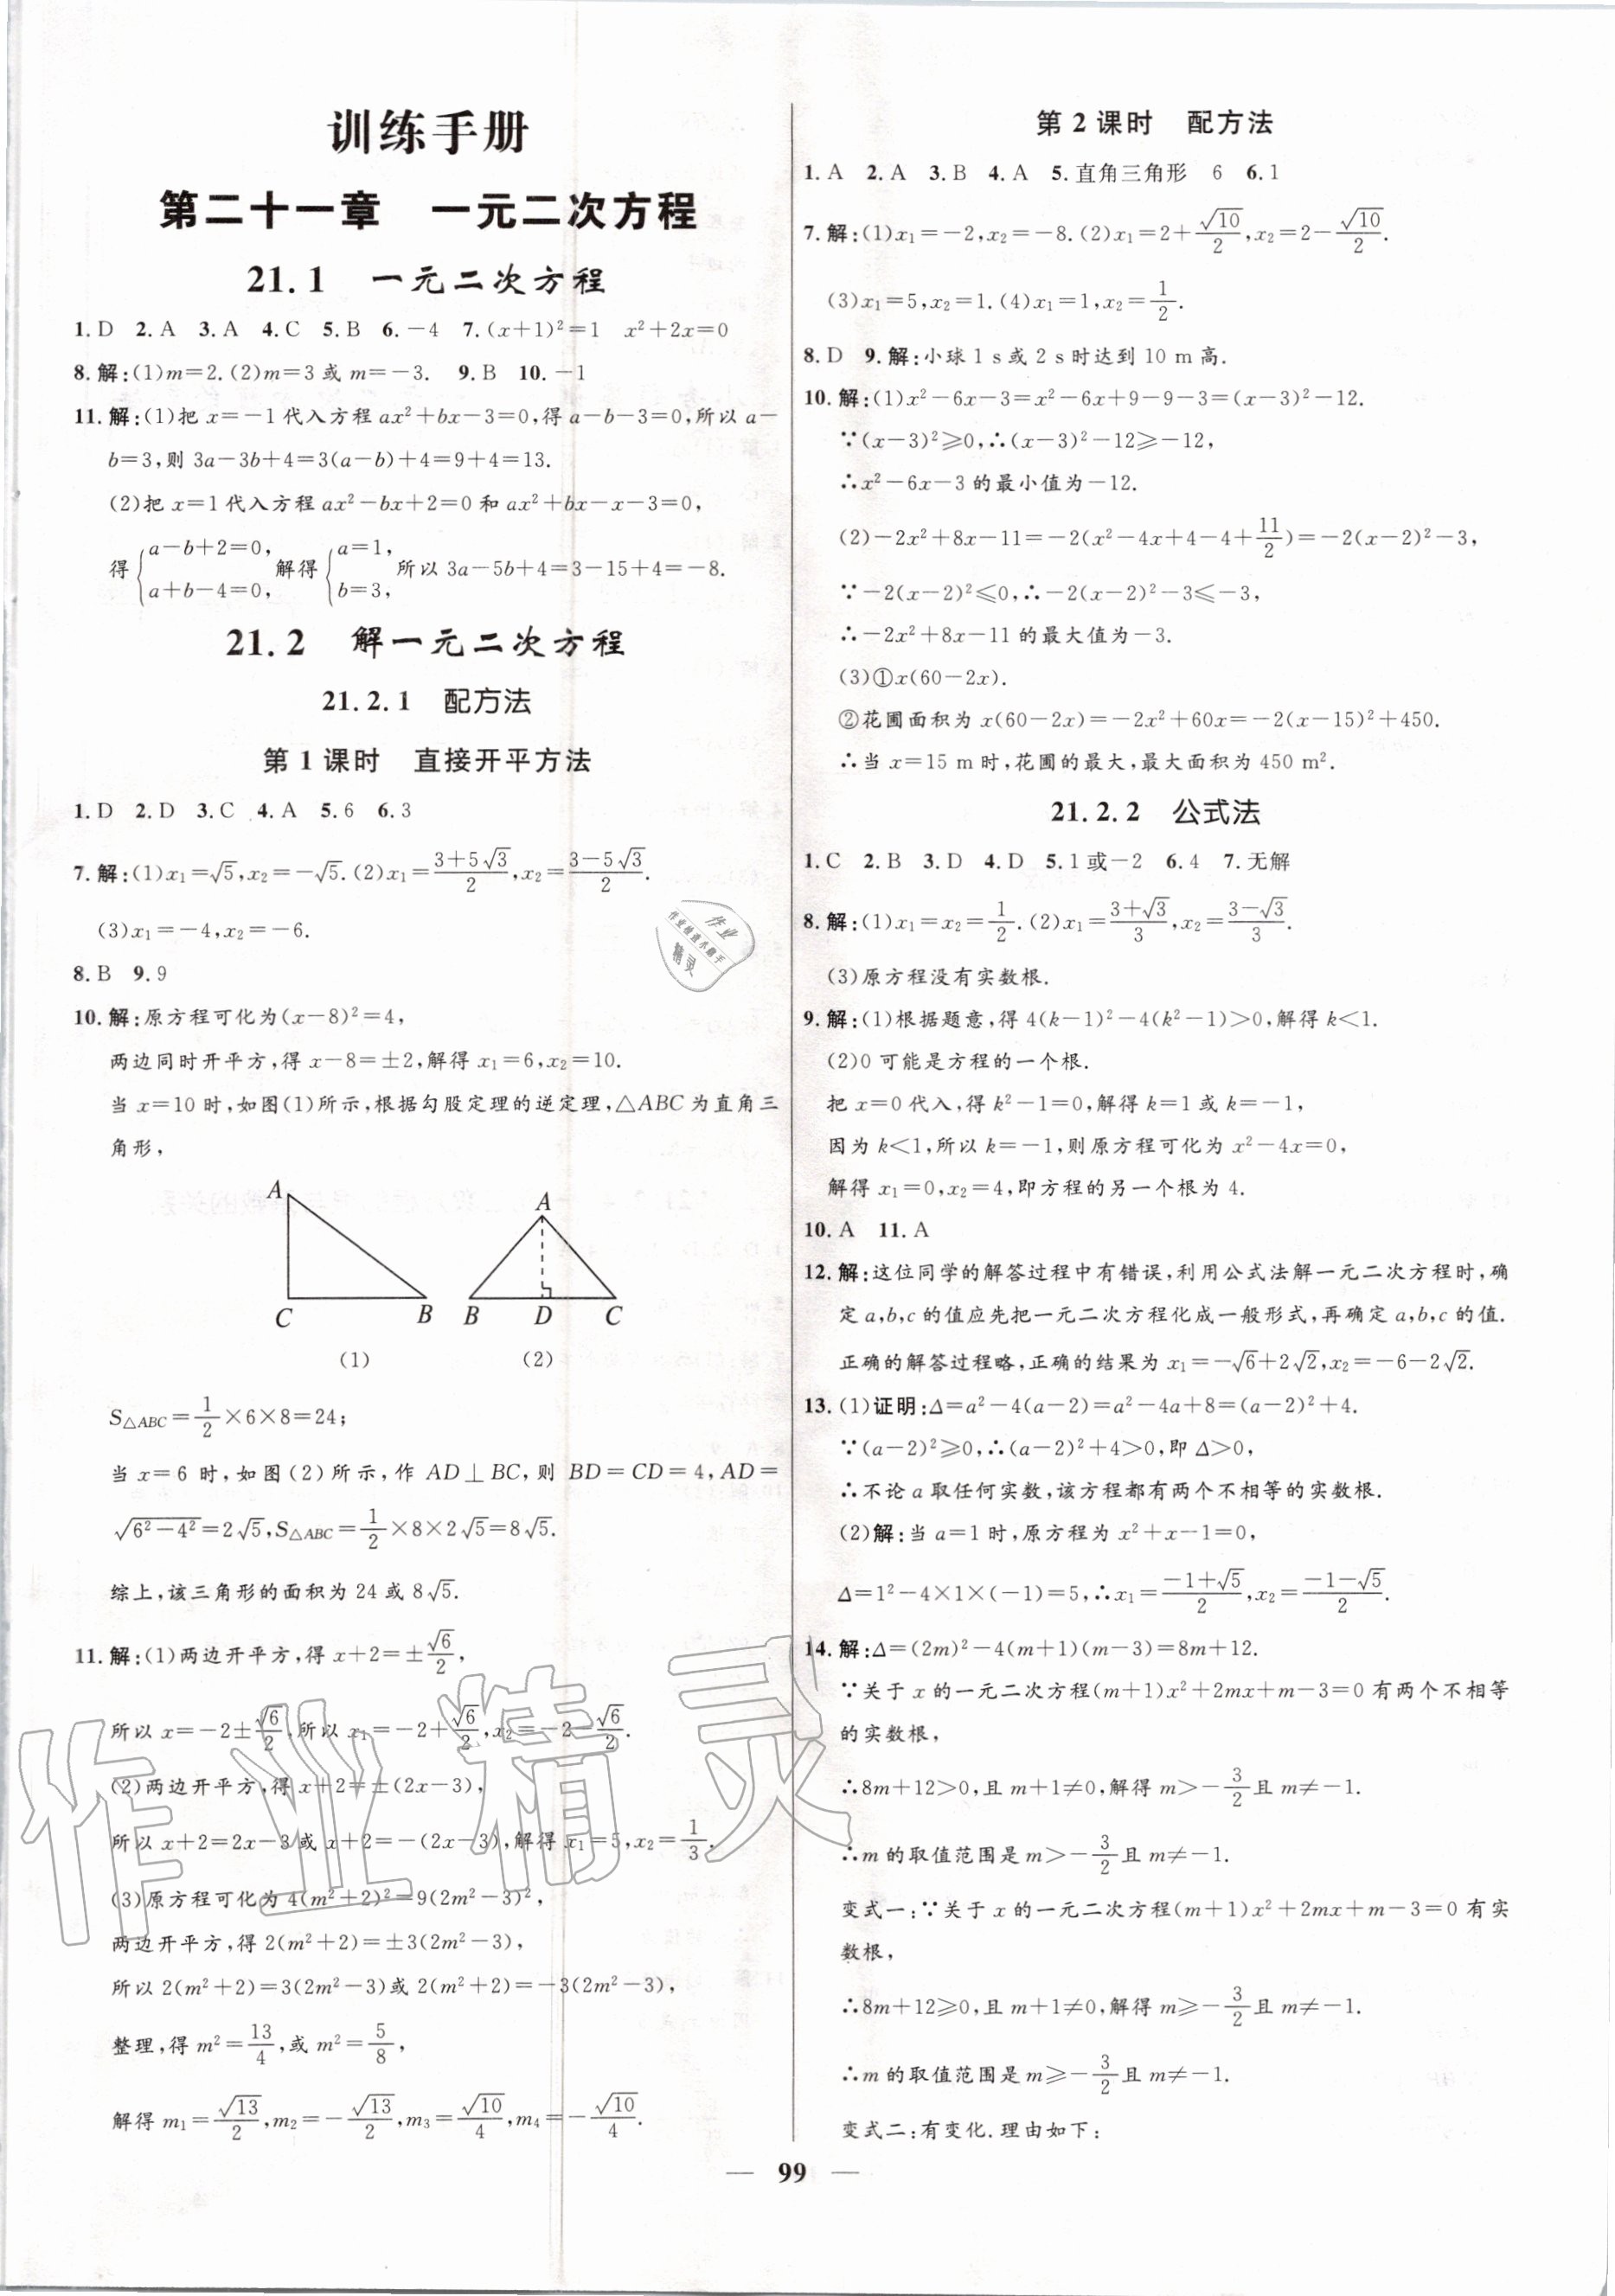 训练手册
第二十一章 一元二次方程
21.1 一元二次方程
1.D 2.A 3.A 4.C 5.B 6.-4 7.(x+1)²=1 x²+2x=0
8.解:(1)m=2.(2)m=3或m=-3. 9.B 10.-1
11.解:(1)把x=-1代入方程ax²+bx-3=0,得a-b-3=0,所以a-
b=3,则3a-3b+4=3(a-b)+4=9+4=13.
(2)把x=1代入方程ax²-bx+2=0和ax²+bx-x-3=0,
得{a-b+2=0, a+b-4=0, 解得{a=1, b=3, 所以3a-5b+4=3-15+4=-8.
21.2 解一元二次方程
21.2.1 配方法
第1课时 直接开平方法
1.D 2.D 3.C 4.A 5.6 6.3
7.解:(1)x₁=√5,x₂=-√5.(2)x₁=(3+5√3)/2,x₂=(3-5√3)/2.
(3)x₁=-4,x₂=-6.
8.B 9.9
10.解:原方程可化为(x-8)²=4,
两边同时开平方,得x-8=±2,解得x₁=6,x₂=10.
当x=10时,如图(1)所示,根据勾股定理的逆定理,△ABC为直角三
角形,
A
C
B
(1)
A
B
D
C
(2)
S△ABC=1/2×6×8=24;
当x=6时,如图(2)所示,作AD⊥BC,则BD=CD=4,AD=
√(6²-4²)=2√5,S△ABC=1/2×8×2√5=8√5.
综上,该三角形的面积为24或8√5.
11.解:(1)两边开平方,得x+2=±√6/2,
所以x=-2±√6/2,所以x₁=-2+√6/2,x₂=-2-√6/2.
(2)两边开平方,得x+2=±(2x-3),
所以x+2=2x-3或x+2=-(2x-3),解得x₁=5,x₂=1/3.
(3)原方程可化为4(m²+2)²=9(2m²-3)²,
两边开平方,得2(m²+2)=±3(2m²-3),
所以2(m²+2)=3(2m²-3)或2(m²+2)=-3(2m²-3),
整理,得m²=13/4,或m²=5/8,
解得m₁=√13/2,m₂=-√13/2,m₃=√10/4,m₄=-√10/4.
第2课时 配方法
1.A 2.A 3.B 4.A 5.直角三角形 6 6.1
7.解:(1)x₁=-2,x₂=-8.(2)x₁=2+√10/2,x₂=2-√10/2.
(3)x₁=5,x₂=1.(4)x₁=1,x₂=1/2.
8.D 9.解:小球1 s或2 s时达到10 m高.
10.解:(1)x²-6x-3=x²-6x+9-9-3=(x-3)²-12.
∵(x-3)²⩾0,∴(x-3)²-12⩾-12,
∴x²-6x-3的最小值为-12.
(2)-2x²+8x-11=-2(x²-4x+4-4+11/2)=-2(x-2)²-3,
∵-2(x-2)²⩽0,∴-2(x-2)²-3⩽-3,
∴-2x²+8x-11的最大值为-3.
(3)①x(60-2x).
②花圃面积为x(60-2x)=-2x²+60x=-2(x-15)²+450.
∴当x=15 m时,花圃的最大,最大面积为450 m².
21.2.2 公式法
1.C 2.B 3.D 4.D 5.1或-2 6.4 7.无解
8.解:(1)x₁=x₂=1/2.(2)x₁=(3+√3)/3,x₂=(3-√3)/3.
(3)原方程没有实数根.
9.解:(1)根据题意,得4(k-1)²-4(k²-1)>0,解得k<1.
(2)0可能是方程的一个根.
把x=0代入,得k²-1=0,解得k=1或k=-1,
因为k<1,所以k=-1,则原方程可化为x²-4x=0,
解得x₁=0,x₂=4,即方程的另一个根为4.
10.A 11.A
12.解:这位同学的解答过程中有错误,利用公式法解一元二次方程时,确
定a,b,c的值应先把一元二次方程化成一般形式,再确定a,b,c的值.
正确的解答过程略,正确的结果为x₁=-√6+2√2,x₂=-6-2√2.
13.(1)证明:Δ=a²-4(a-2)=a²-4a+8=(a-2)²+4.
∵(a-2)²⩾0,∴(a-2)²+4>0,即Δ>0,
∴不论a取任何实数,该方程都有两个不相等的实数根.
(2)解:当a=1时,原方程为x²+x-1=0,
Δ=1²-4×1×(-1)=5,∴x₁=(-1+√5)/2,x₂=(-1-√5)/2.
14.解:Δ=(2m)²-4(m+1)(m-3)=8m+12.
∵关于x的一元二次方程(m+1)x²+2mx+m-3=0有两个不相等
的实数根,
∴8m+12>0,且m+1≠0,解得m>-3/2且m≠-1.
∴m的取值范围是m>-3/2且m≠-1.
变式一:∵关于x的一元二次方程(m+1)x²+2mx+m-3=0有实
数根,
∴8m+12⩾0,且m+1≠0,解得m⩾-3/2且m≠-1.
∴m的取值范围是m⩾-3/2且m≠-1.
变式二:有变化.理由如下:
— 99 —
作业精灵